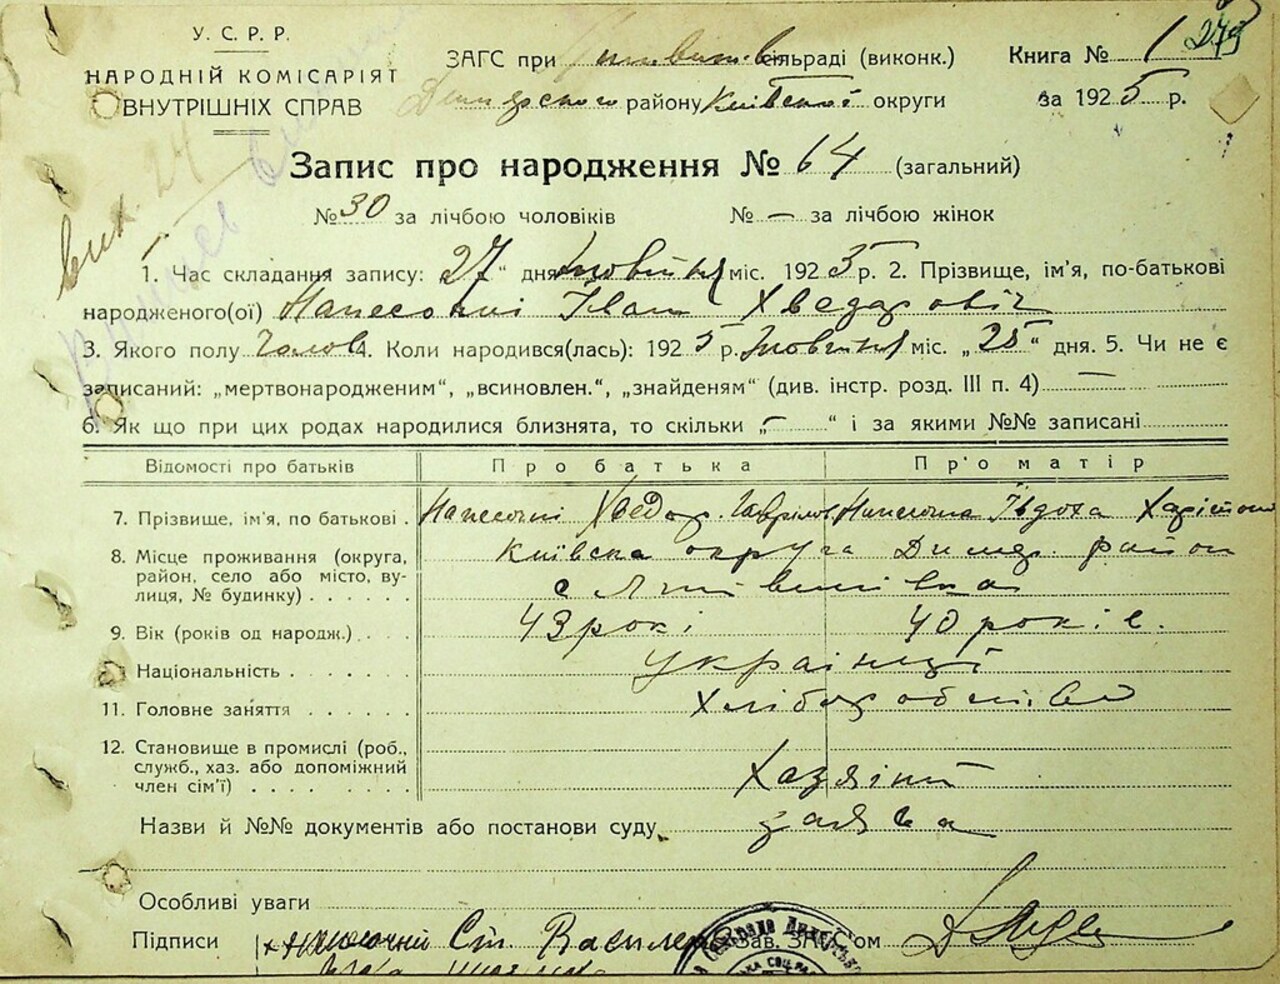 У. С. Р. Р.
НАРОДНІЙ КОМІСАРІЯТ
ВНУТРІШНІХ СПРАВ
ЗАГС при сільраді (виконк.)
Димерского району Київської округи
Книга № 1 275
за 1925 р.
Запис про народження № 64 (загальний)
№ 30 за лічбою чоловіків № — за лічбою жінок
1. Час складання запису: 27 " дня жовтня міс. 1925 р. 2. Прізвище, ім'я, по-батькові
народженого(ої) Іван Хведоровіч
3. Якого полу Чолов. 4. Коли народився(лась): 1925 р. жовтня міс. „ 25 " дня. 5. Чи не є
записаний: „мертвонародженим", „всиновлен.", „знайденям" (див. інстр. розд. III п. 4) —
6. Як що при цих родах народилися близнята, то скільки „ - " і за якими №№ записані
Відомості про батьків Про батька Про матір
7. Прізвище, ім'я, по батькові . Хведор. Гаврілов Івдоха Харітон
8. Місце проживання (округа, район, село або місто, вулиця, № будинку) . . . . . . Київска округа Димер. район
с
9. Вік (років од народж.) . . . 43 рокі 40 років.
Національність . . . . . . . українці
11. Головне заняття . . . . . . хліборобство
12. Становище в промислі (роб., служб., хаз. або допоміжний член сім'ї) . . . . . . . . Хазяіни
Назви й №№ документів або постанови суду заява
Особливі уваги
Підписи Ст. Зав. ЗАГС'ом